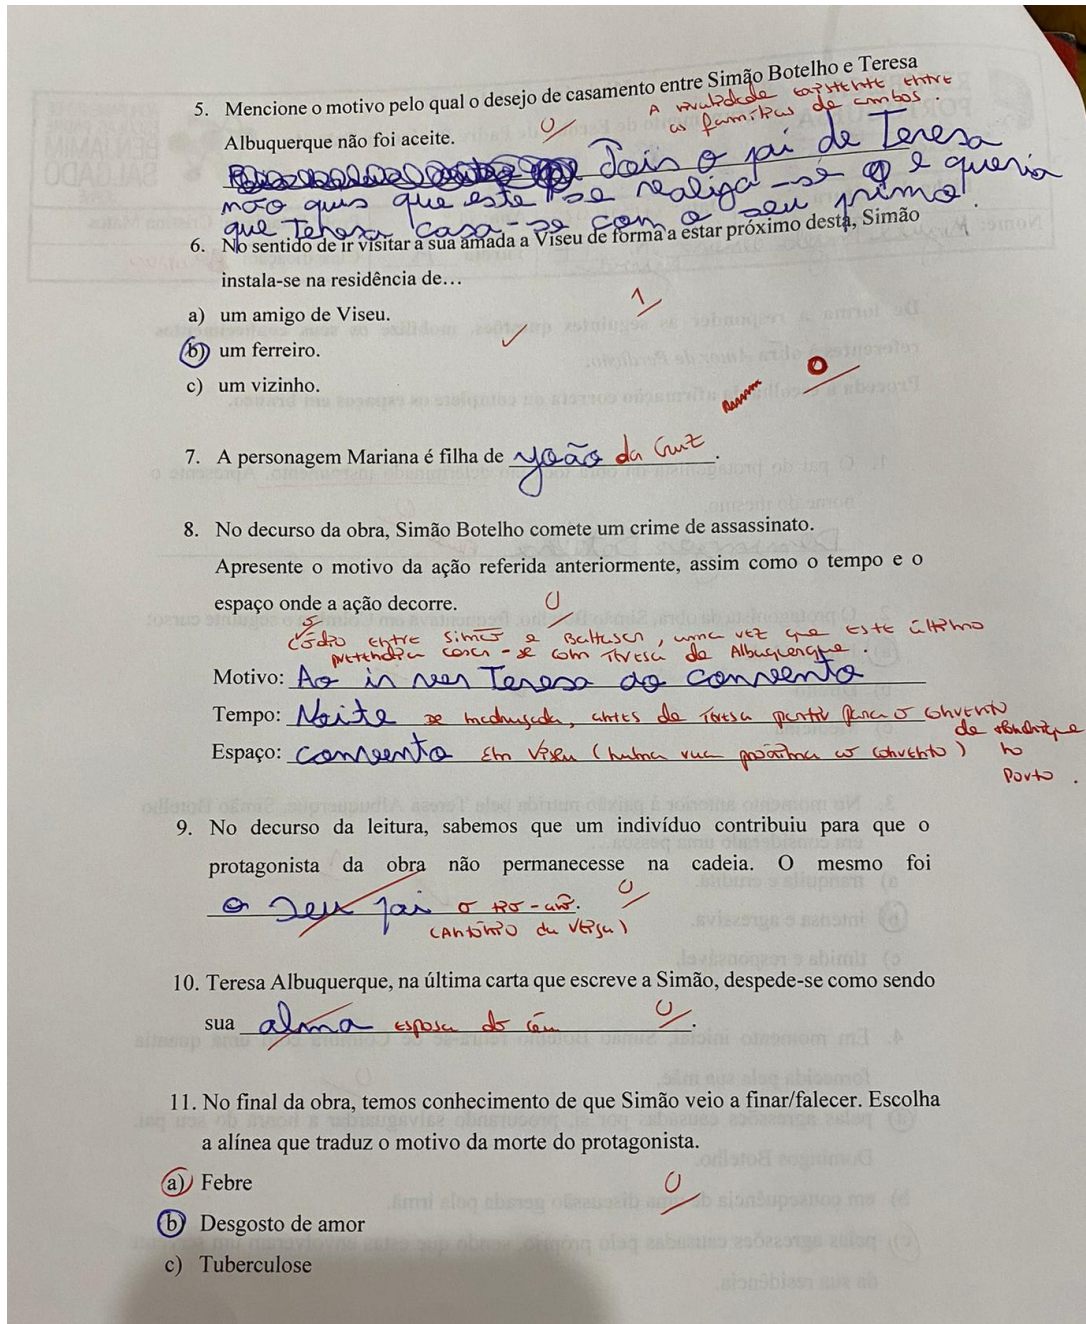 5. Mencione o motivo pelo qual o desejo de casamento entre Simão Botelho e Teresa
A rivalidade existente entre
as famílias de ambos.
Albuquerque não foi aceite.
0
Pois o pai de Teresa
não quis que este se realiza-se e queria
que Teresa casa-se com o seu primo.
6. No sentido de ir visitar a sua amada a Viseu de forma a estar próximo desta, Simão
instala-se na residência de…
1
a) um amigo de Viseu.
b) um ferreiro.
c) um vizinho.
0
7. A personagem Mariana é filha de João da Cruz.
8. No decurso da obra, Simão Botelho comete um crime de assassinato.
Apresente o motivo da ação referida anteriormente, assim como o tempo e o
espaço onde a ação decorre.
0
ódio entre Simão e Baltasar, uma vez que este último
pretendia casar-se com Teresa de Albuquerque.
Motivo: Ao ir ver Teresa ao convento
Tempo: Noite de madrugada, antes de Teresa partir para o convento
de Monchique
Espaço: convento Em Viseu (numa rua próxima ao convento)
no
Porto.
9. No decurso da leitura, sabemos que um indivíduo contribuiu para que o
protagonista da obra não permanecesse na cadeia. O mesmo foi
0
o seu pai o tio-avô.
(António da Veiga)
10. Teresa Albuquerque, na última carta que escreve a Simão, despede-se como sendo
sua alma esposa do céu 0.
11. No final da obra, temos conhecimento de que Simão veio a finar/falecer. Escolha
a alínea que traduz o motivo da morte do protagonista.
a) Febre
0
b) Desgosto de amor
c) Tuberculose